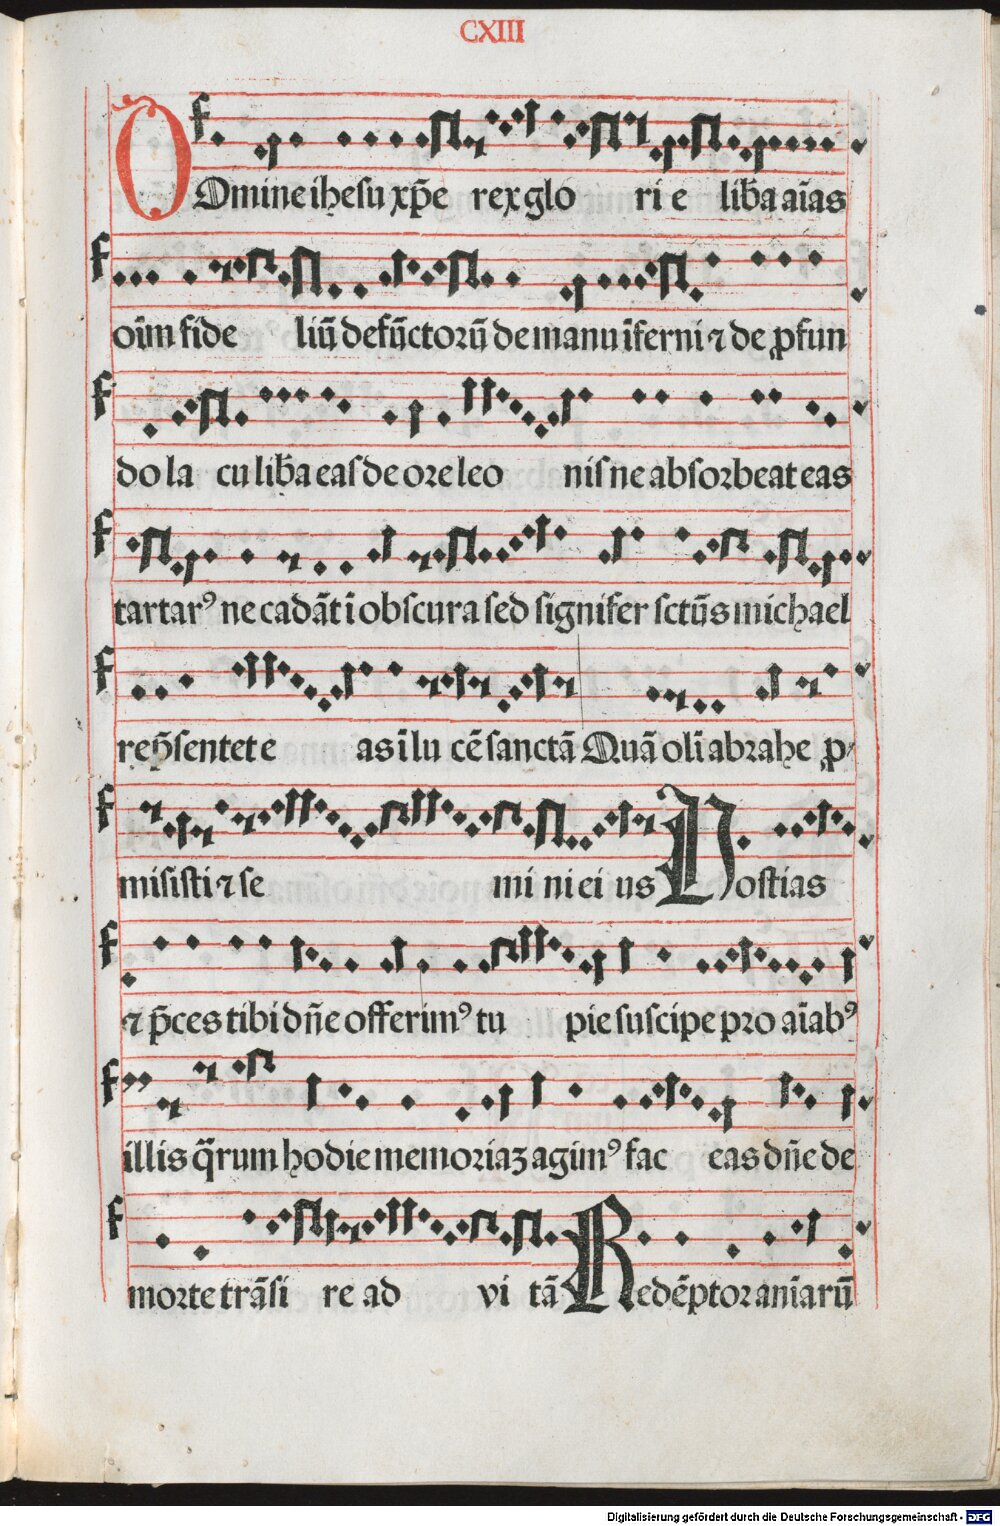 CXIII
DOmine ihesu xp̄e rex glo ri e lib̄a aīas
oīm fide liū defūctorū de manu īferni ⁊ de ꝓfun
do la cu lib̄a eas de ore leo nis ne absorbeat eas
tartarꝰ ne cadāt ī obscura sed signifer sctūs michael
rep̄sentet e as ī lu cē sanctā Quā olī abrahe ꝓ
misisti ⁊ se mi ni ei us Hostias
⁊ p̄ces tibi dn̄e offerimꝰ tu pie suscipe pro aīabꝰ
illis q̄rum hodie memoriaꝫ agimꝰ fac eas dn̄e de
morte trāsi re ad vi tā Redēptor anīarū
Digitalisierung gefördert durch die Deutsche Forschungsgemeinschaft - DFG